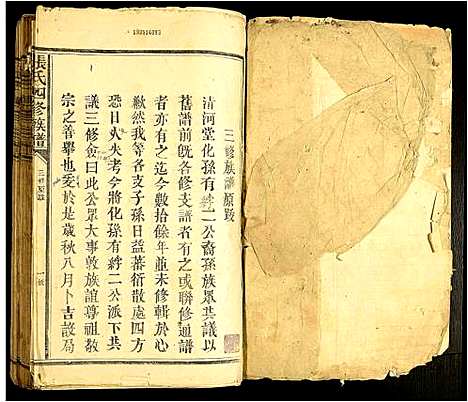 三修族譜原跋
清河堂化孫有綍二公裔孫族眾共議以
舊譜前既各修支譜者有之或聯修通譜
者亦有之迄今數拾餘年並未修輯於心
歉然我等各支子孫日益蕃衍散處四方
恐日久失考今將化孫有綍二公派下共
議三修僉曰此公眾大事敦族誼尊祖敬
宗之善舉也爰於是歲秋八月卜吉設局
張氏四修族譜
三修原跋